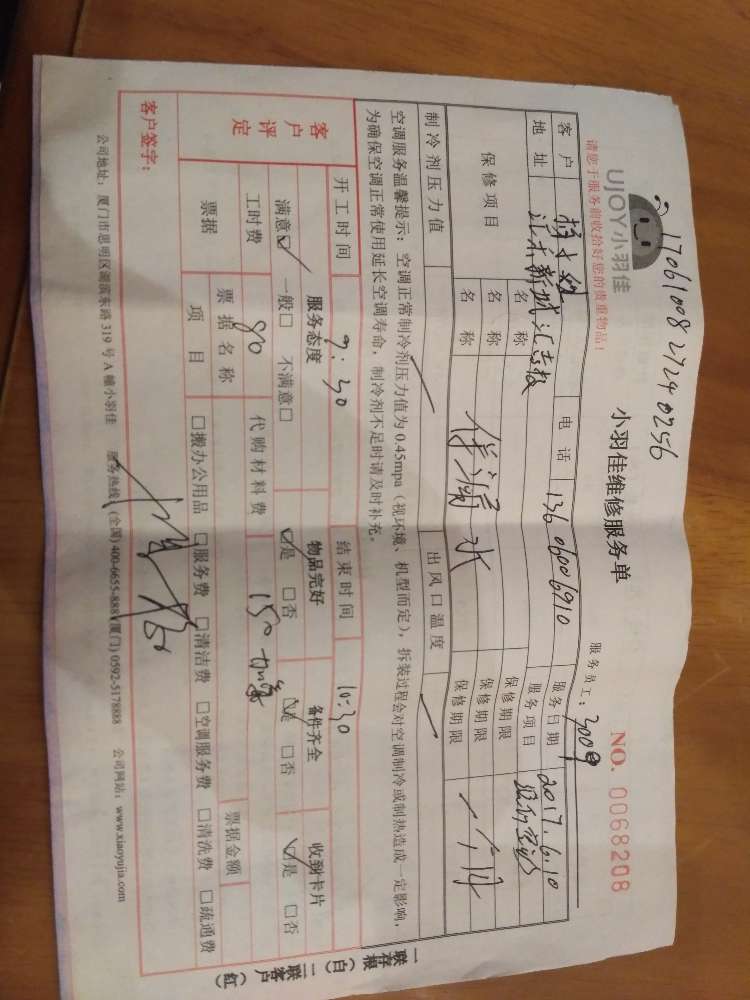 17061008 2724 0256
UJOY小羽佳
请您于服务前收拾好您的贵重物品！
小羽佳维修服务单
服务员工：3009
NO. 0068208
客户 电话 13606006910 服务日期 2017.6.10
地址 江东新城汇志设 服务项目
保修项目 名称 保修期限
名称 保修期限
名称 水 保修期限 一个月
制冷剂压力值 出风口温度
空调服务温馨提示：空调正常制冷剂压力值为 0.45mpa（视环境、机型而定），拆装过程会对空调制冷或制热造成一定影响，
为确保空调正常使用延长空调寿命，制冷剂不足时请及时补充。
开工时间 9:30 结束时间 10:30
客户评定 服务态度 物品完好 备件齐全 收到卡片
满意☑ 一般□ 不满意□ ☑是 □否 ☑是 □否 ☑是 □否
工时费 80 代购材料费 150
票据 票据名称 票据金额
项目 □搬办公用品 □服务费 □清洁费 □空调服务费 □清洗费 □疏通费
客户签字：
公司地址：厦门市思明区湖滨东路 319 号 A 幢小羽佳 服务热线：(全国) 400-6655-888 (厦门) 0592-5178888 公司网站：www.xiaoyujia.com
一联存根（白） 二联客户（红）